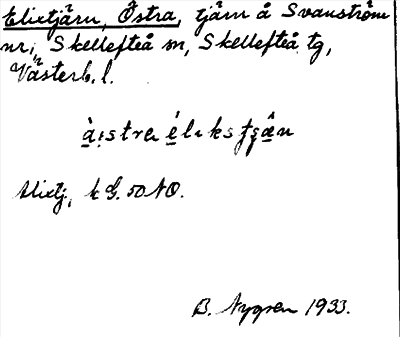 Elixtjärn, Östra, tjärn å Svanström
nr, Skellefteå sn, Skellefteå tg,
Västerb. l.
Alixtj, k G. 50 NO.
B. Nygren 1933.